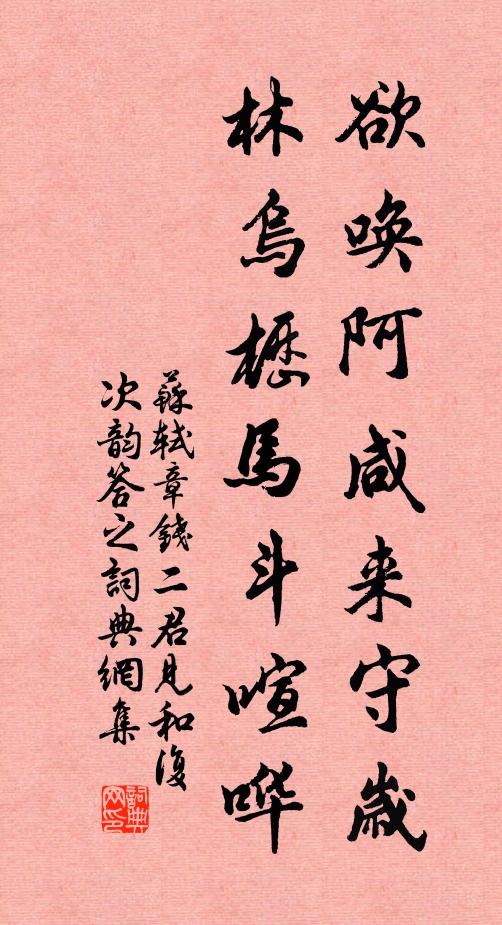 欲唤阿咸来守歲
林烏櫪馬斗喧哗
蘇轼章錢二君見和復
次韵答之詞典網集
詞典網印